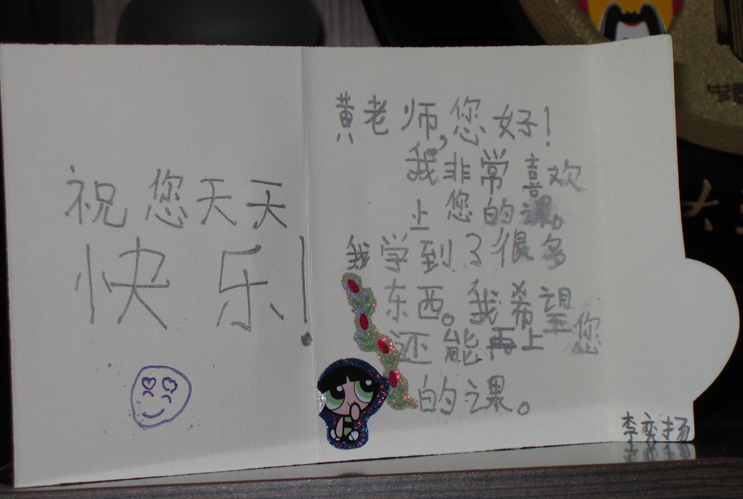 祝您天天
快乐!
黄老师,您好!
我非常喜欢
上您的课。
我学到了很多
东西。我希望
还能再上您
的课。
李奕扬